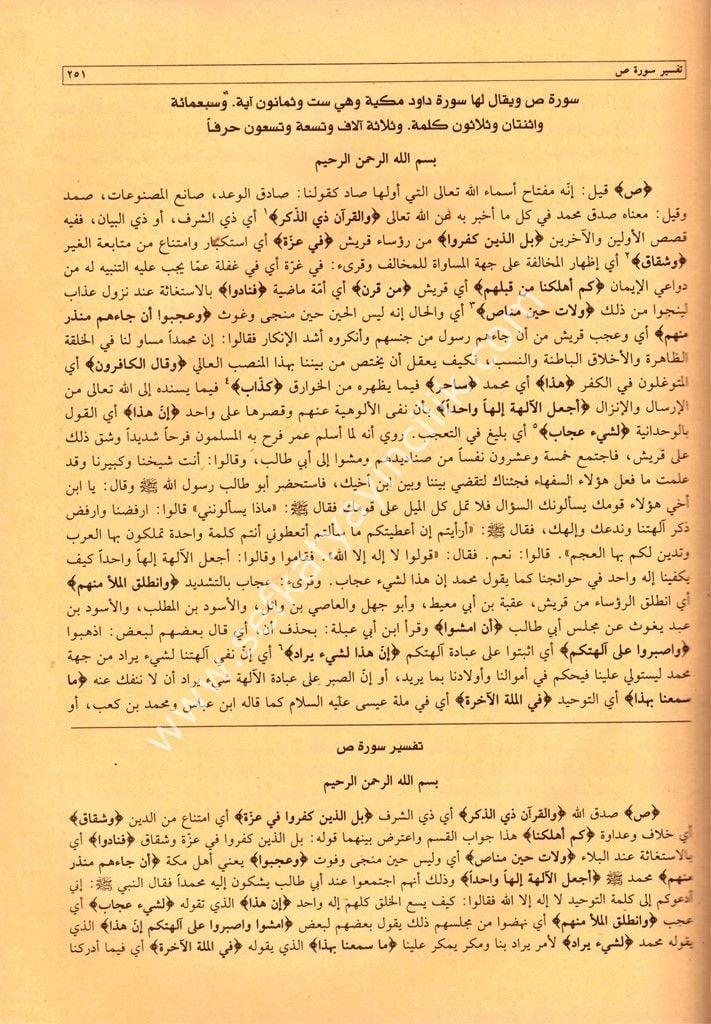 تفسير سورة ص ٢٥١
سورة ص ويقال لها سورة داود مكية وهي ست وثمانون آية. وسبعمائة
واثنتان وثلاثون كلمة. وثلاثة آلاف وتسعة وتسعون حرفاً
بسم الله الرحمن الرحيم
﴿ص﴾ قيل: إنّه مفتاح أسماء الله تعالى التي أولها صاد كقولنا: صادق الوعد، صانع المصنوعات، صمد
وقيل: معناه صدق محمد في كل ما أخبر به عن الله تعالى ﴿والقرآن ذي الذّكر﴾١ أي ذي الشرف، أو ذي البيان، ففيه
قصص الأولين والآخرين ﴿بل الذين كفروا﴾ من رؤساء قريش ﴿في عزّة﴾ أي استكبار وامتناع من متابعة الغير
﴿وشقاق﴾٢ أي إظهار المخالفة على جهة المساواة للمخالف وقرىء: في غرّة أي في غفلة عمّا يجب عليه التنبيه له من
دواعي الإيمان ﴿كم أهلكنا من قبلهم﴾ أي قريش ﴿من قرن﴾ أي أمّة ماضية ﴿فنادوا﴾ بالاستغاثة عند نزول عذاب
لينجوا من ذلك ﴿ولات حين مناص﴾٣ أي والحال إنه ليس الحين حين منجى وغوث ﴿وعجبوا أن جاءهم منذر
منهم﴾ أي وعجب قريش من أن جاءهم رسول من جنسهم وأنكروه أشد الإنكار فقالوا: إن محمداً مساو لنا في الخلقة
الظاهرة والأخلاق الباطنة والنسب، فكيف يعقل أن يختص من بيننا بهذا المنصب العالي ﴿وقال الكافرون﴾ أي
المتوغلون في الكفر ﴿هذا﴾ أي محمد ﴿ساحر﴾ فيما يظهره من الخوارق ﴿كذّاب﴾٤ فيما يسنده إلى الله تعالى من
الإرسال والإنزال ﴿أجعل الآلهة إلهاً واحداً﴾ بأن نفى الألوهية عنهم وقصرها على واحد ﴿إنّ هذا﴾ أي القول
بالوحدانية ﴿لشيء عجاب﴾٥ أي بليغ في التعجب. روي أنه لما أسلم عمر فرح به المسلمون فرحاً شديداً وشق ذلك
على قريش، فاجتمع خمسة وعشرون نفساً من صناديدهم ومشوا إلى أبي طالب، وقالوا: أنت شيخنا وكبيرنا وقد
علمت ما فعل هؤلاء السفهاء فجئناك لتقضي بيننا وبين ابن أخيك، فاستحضر أبو طالب رسول الله ﷺ وقال: يا ابن
أخي هؤلاء قومك يسألونك السؤال فلا تمل كل الميل على قومك فقال ﷺ: «ماذا يسألونني» قالوا: ارفضنا وارفض
ذكر آلهتنا وندعك وإلهك، فقال ﷺ: «أرأيتم إن أعطيتكم ما سألتم أتعطوني أنتم كلمة واحدة تملكون بها العرب
وتدين لكم بها العجم». قالوا: نعم. فقال: «قولوا لا إله إلا الله». فقاموا وقالوا: أجعل الآلهة إلهاً واحداً كيف
يكفينا إله واحد في حوائجنا كما يقول محمد إن هذا لشيء عجاب. وقرىء: عجاب بالتشديد ﴿وانطلق الملأ منهم﴾
أي انطلق الرؤساء من قريش، عقبة بن أبي معيط، وأبو جهل والعاصي بن وائل، والأسود بن المطلب، والأسود بن
عبد يغوث عن مجلس أبي طالب ﴿أن امشوا﴾ وقرأ ابن أبي عبلة: بحذف أن، أي قال بعضهم لبعض: اذهبوا
﴿واصبروا على آلهتكم﴾ أي اثبتوا على عبادة آلهتكم ﴿إنّ هذا لشيء يراد﴾٦ أي إنّ نفى آلهتنا لشيء يراد من جهة
محمد ليستولي علينا فيحكم في أموالنا وأولادنا بما يريد، أو إنّ الصبر على عبادة الآلهة شيء يراد أن لا ننفك عنه ﴿ما
سمعنا بهذا﴾ أي التوحيد ﴿في الملة الآخرة﴾ أي في ملة عيسى عليه السلام كما قاله ابن عباس ومحمد بن كعب، أو
تفسير سورة ص
بسم الله الرحمن الرحيم
﴿ص﴾ صدق الله ﴿والقرآن ذي الذكر﴾ أي ذي الشرف ﴿بل الذين كفروا في عزّة﴾ أي امتناع من الدين ﴿وشقاق﴾
أي خلاف وعداوة ﴿كم أهلكنا﴾ هذا جواب القسم واعترض بينهما قوله: بل الذين كفروا في عزّة وشقاق ﴿فنادوا﴾ أي
بالاستغاثة عند البلاء ﴿ولات حين مناص﴾ أي وليس حين منجى وفوت ﴿وعجبوا﴾ يعني أهل مكة ﴿أن جاءهم منذر
منهم﴾ محمد ﷺ ﴿أجعل الآلهة إلهاً واحداً﴾ وذلك أنهم اجتمعوا عند أبي طالب يشكون إليه محمداً فقال النبي ﷺ: إني
أدعوكم إلى كلمة التوحيد لا إله إلا الله فقالوا: كيف يسع الخلق كلهم إله واحد ﴿إن هذا﴾ الذي تقوله ﴿لشيء عجاب﴾ أي
عجب ﴿وانطلق الملأ منهم﴾ أي نهضوا من مجلسهم ذلك يقول بعضهم لبعض ﴿امشوا واصبروا على آلهتكم إنّ هذا﴾ الذي
يقوله محمد ﴿لشيء يراد﴾ لأمر يراد بنا ومكر يمكر علينا ﴿ما سمعنا بهذا﴾ الذي يقوله ﴿في الملة الآخرة﴾ أي فيما أدركنا